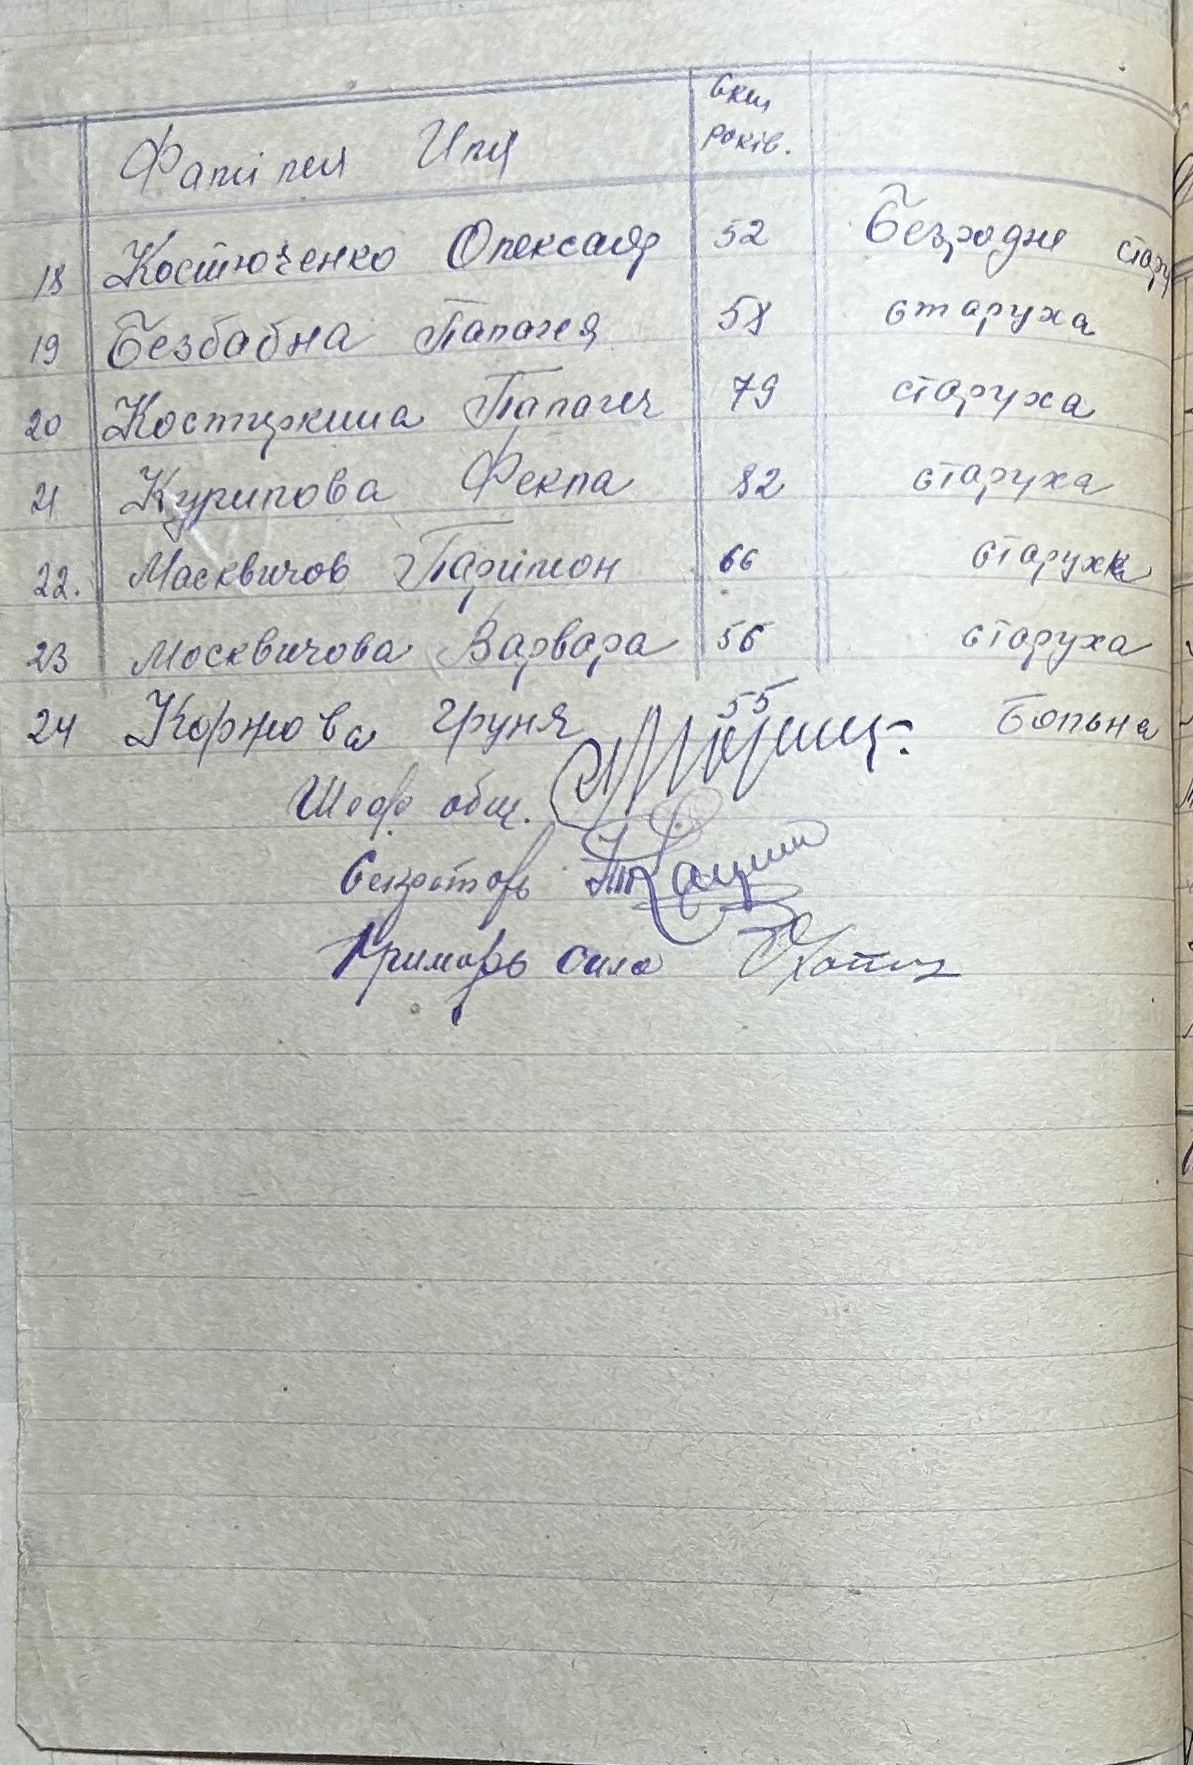 Фамілия Имя скіл. років.
18 Костюченко Олександр 52 безродне стару
19 Безбабна Палагея 58 старуха
20 Костиркина Палагея 79 старуха
21 Курилова Фекла 82 старуха
22. Масквичов Паримон 66 старуха
23 Москвичова Варвара 56 старуха
24 Коржова Груня 55 больна
Шеф общ.
Секретарь
Примарь села